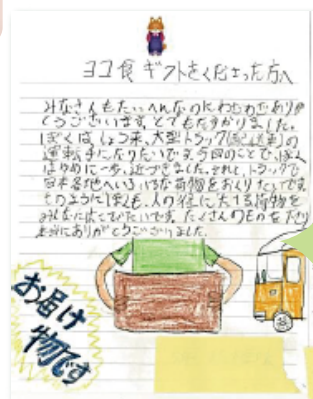 ヨコ食ギフトをくださった方へ
みなさんもたいへんなのにわざわざありが
とうございます。とてもたすかりました。
ぼくは、しょう来、大型トラック(配送車)の
運転手になりたいです。今回のことで、ぼくの
ゆめに一歩、近づきました。それと、トラックで
日本各地へいろいろな荷物をおくりたいです。
そのようにぼくも、人の役に立てる荷物を
みんなにとどけたいです。たくさんのものを下さり
本当にありがとうございました。
お届け
物です